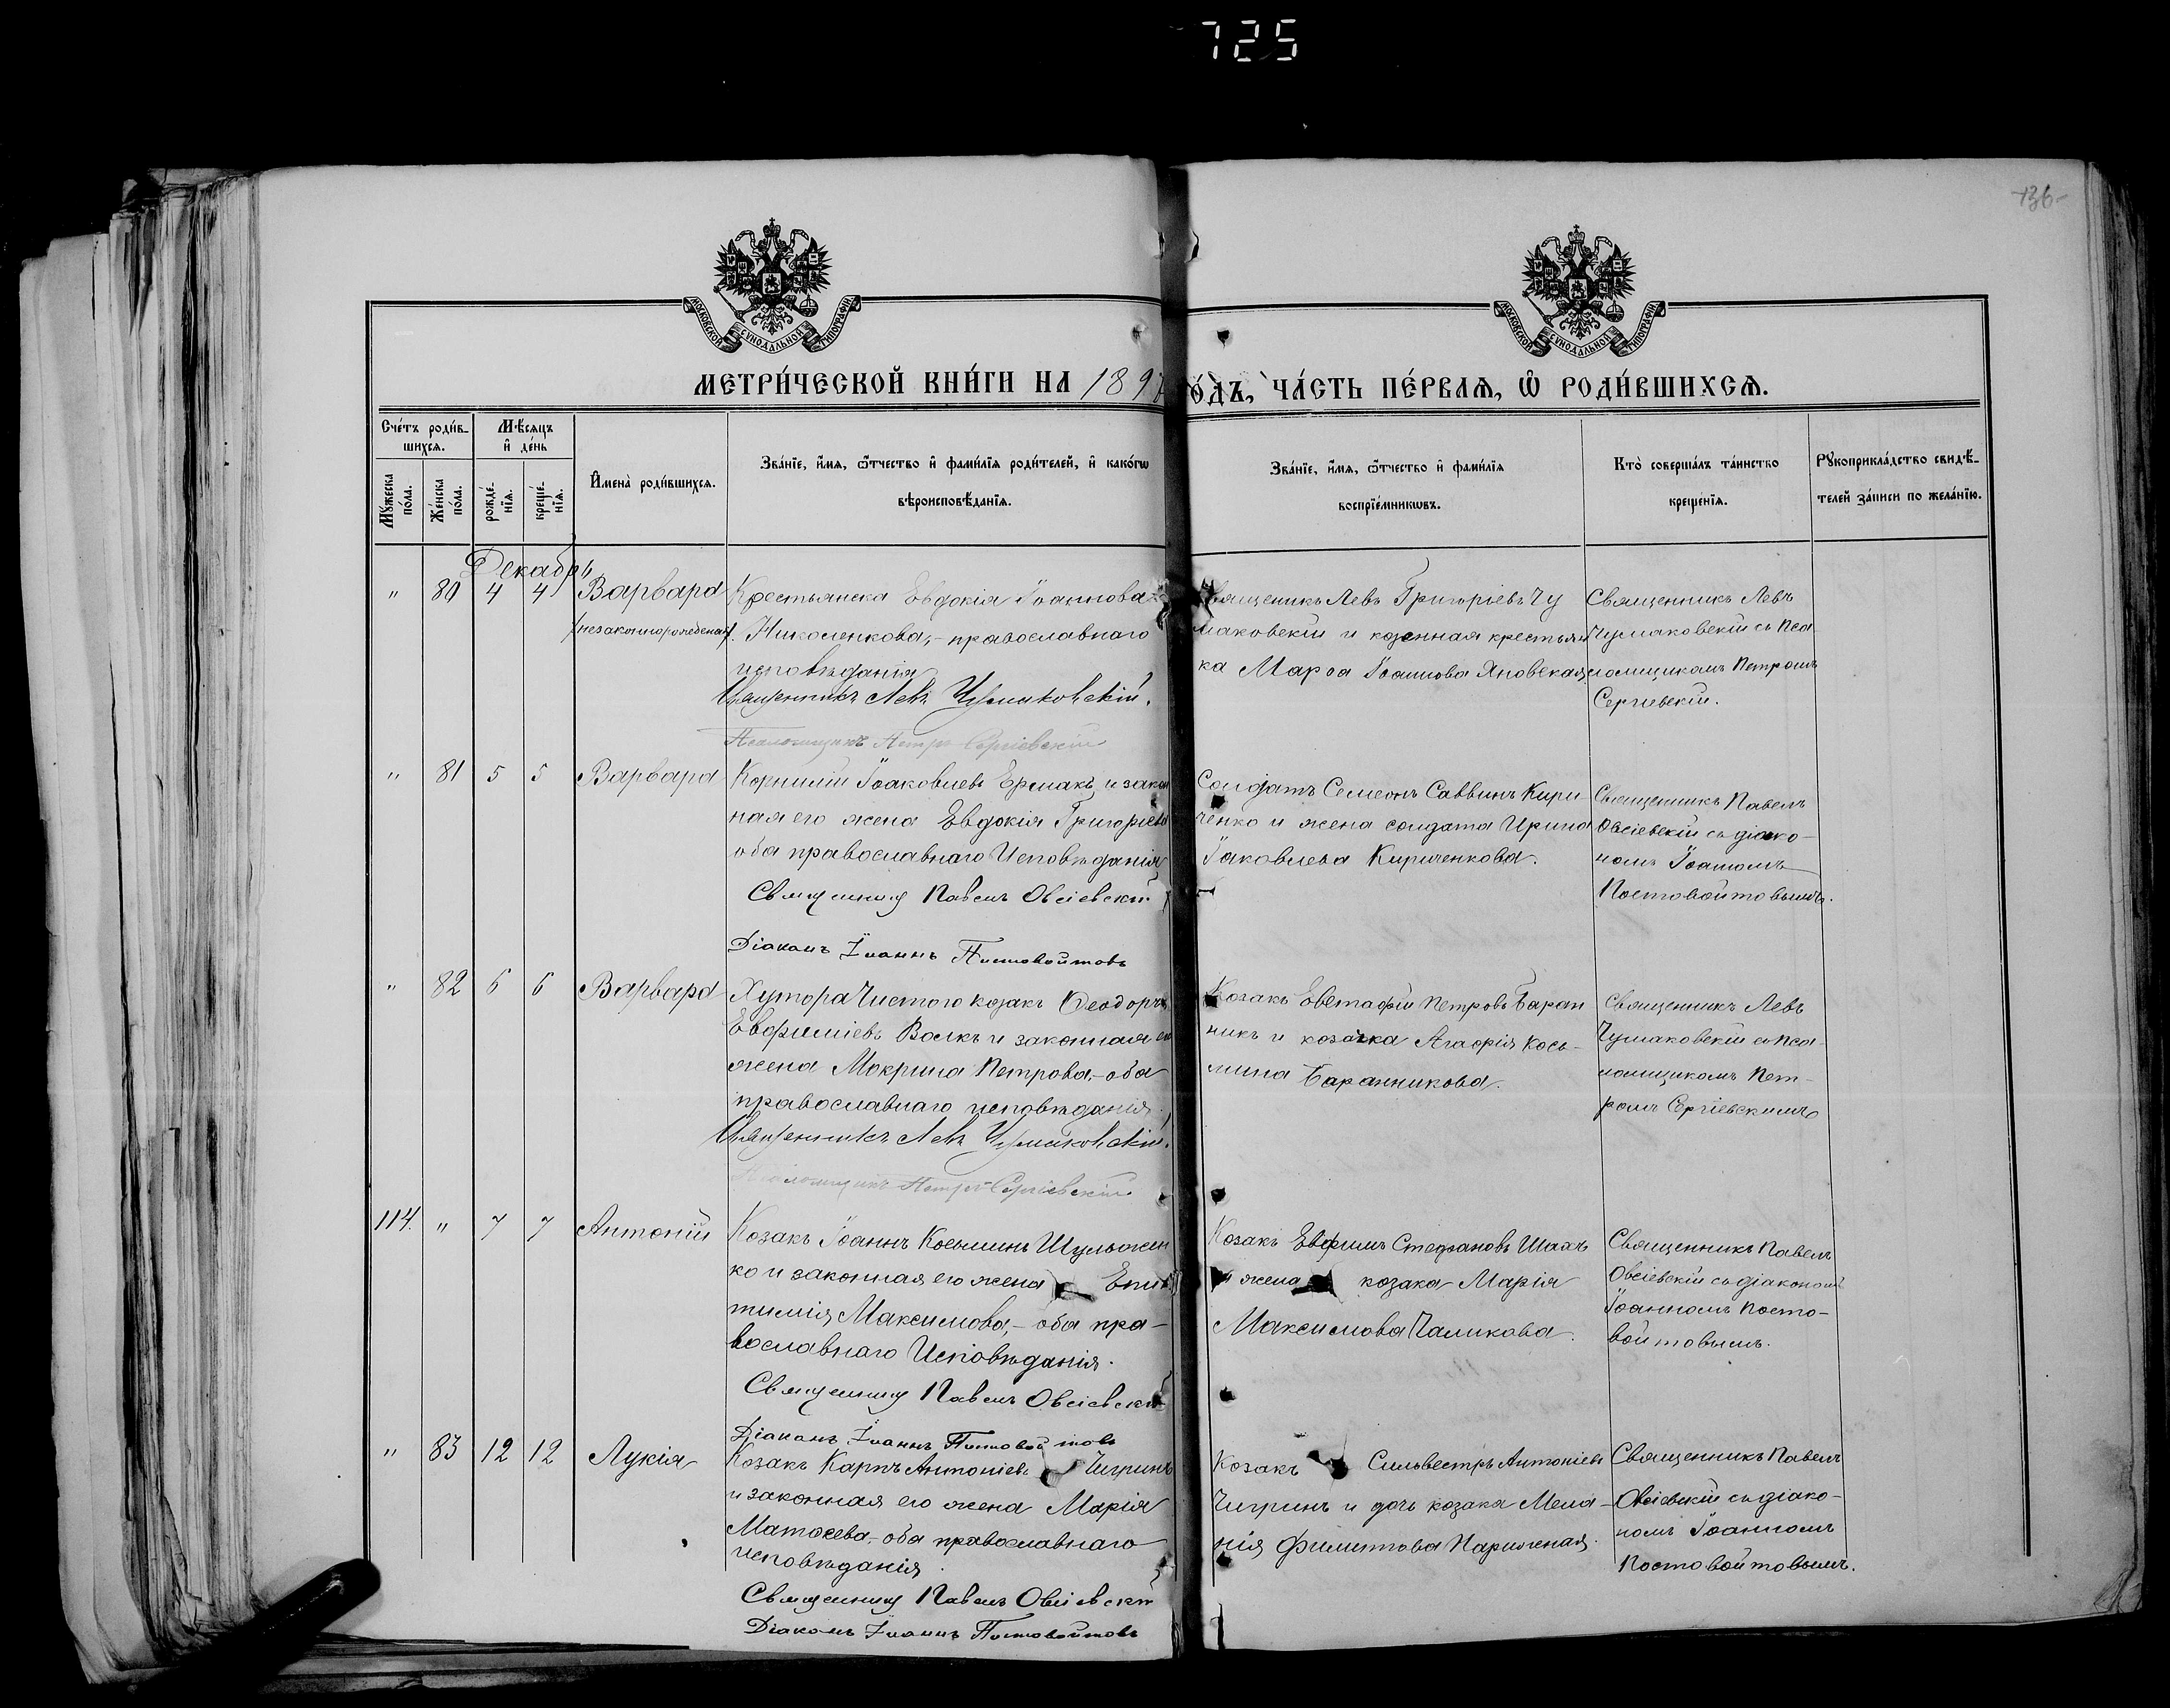 725
136
МОСКОВСКОЙ СУНОДАЛЬНОЙ ТИПОГРАФІИ
МОСКОВСКОЙ СУНОДАЛЬНОЙ ТИПОГРАФІИ
МЕТРИ́ЧЕСКОЙ КНИ́ГИ НА 189
О́ДЪ, ЧА́СТЬ ПЕ́РВАЯ, Ѡ҆ РОДИ́ВШИХСЯ.
Сче́тъ роди́в-
шихся.
Мѣ́сяцъ
и҆ де́нь
Му́жеска по́ла.
Же́нска по́ла.
рожде́нїя.
креще́нїя.
И҆мена̀ роди́вшихся.
Зва́нїе, и҆́мя, ѻ҆́тчество и҆ фами́лїя роди́телей, и҆ како́гѡ
вѣроисповѣ́данїя.
Зва́нїе, и҆́мя, ѻ҆́тчество и҆ фами́лїя
воспрїе́мникѡвъ.
Кто̀ соверша́лъ та́инство
креще́нїя.
Рукоприкла́дство свидѣ́-
телей за́писи по жела́нїю.
Декабрь
" 80 4 4 Варвара
/незаконнорожденая/.
Крестьянска Евдокія Іоаннова
Николенкова,- православнаго
исповѣданія
Священникъ Левъ Чумаковскій.
Псаломщикъ Петръ Сергіевскій
Священикъ Левъ Григоріевъ Чу
маковскій и козенная крестьян
ка Марѳа Іоаннова Яновская
Священникъ Левъ
Чумаковскій съ Пса
ломщикомъ Петромъ
Сергіевскій.
" 81 5 5 Варвара
Корнилій Іоаковлевъ Ермакъ и закон
ная его жена Евдокія Григоріева
оба православнаго Исповѣданія
Священникъ Павелъ Овсіевскій
Діаконъ Іоаннъ Постовойтовъ
Солдатъ Семеонъ Саввинъ Кири
ченко и жена солдата Ирина
Іаковлева Кириченкова.
Священникъ Павелъ
Овсіевскій съ діако-
номъ Іоанномъ
Постовойтовымъ.
" 82 6 6 Варвара
Хутора Чистого козакъ Ѳеодоръ
Евфиміевъ Волкъ и законная его
жена Мокрина Петрова,- оба
православнаго исповѣданія.
Священникъ Левъ Чумаковскій.
Псаломщикъ Петръ Сергіевскій.
Козакъ Евстафій Петровъ Баран
никъ и козачка Агафія Кось-
мина Баранникова.
Священникъ Левъ
Чумаковскій съ Пса-
ломщикомъ Пет-
ромъ Сергіевскимъ
114. " 7 7 Антоній
Козакъ Іоаннъ Косьминъ Шульжен
ко и законная его жена Епис
тимія Максимова,- оба пра-
вославнаго Исповѣданія.
Священникъ Павелъ Овсіевскій
Діаконъ Іоаннъ Постовойтовъ
Козакъ Евфимъ Стефановъ Шахъ
и жена козака Марія
Максимова Чаликова.
Священникъ Павелъ
Овсіевскій съ діакономъ
Іоанномъ Посто-
войтовымъ.
" 83 12 12 Лукія
Козакъ Карпъ Антоніевъ Чигринъ
и законная его жена Марія
Матѳеева,- оба православнаго
исповѣданія.
Священникъ Павелъ Овсіевскій
Діаконъ Іоаннъ Постовойтовъ
Козакъ Сильвестръ Антоніевъ
Чигринъ и дочь козака Мела-
нія Филиппова
Священникъ Павелъ
Овсіевскій съ діако-
номъ Іоанномъ
Постовойтовымъ.